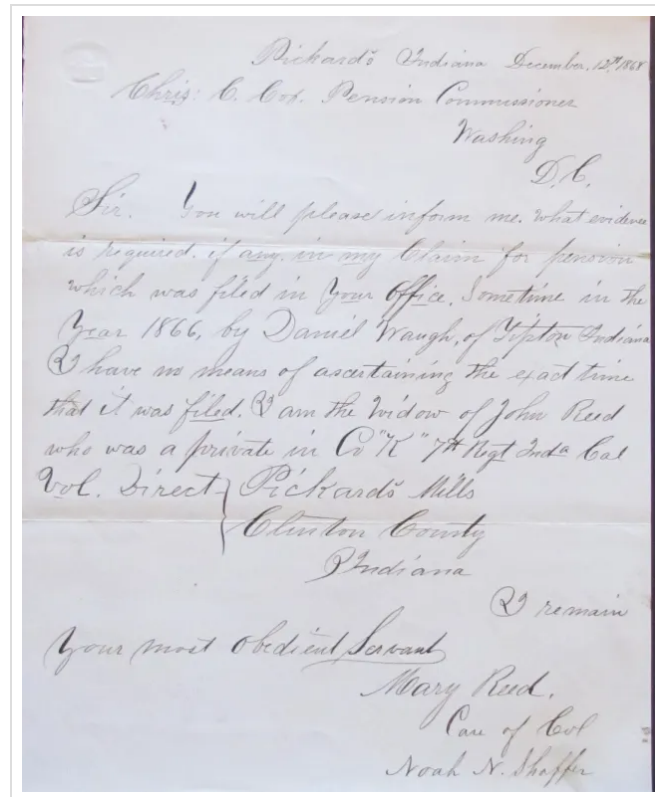 Pickard's Indiana December. 12th 1868
Chris: C. Cox. Pension Commissioner
Washing
D.C.
Sir. You will please inform me. What evidence
is required. if any. in my Claim for pension
which was filed in your Office. Sometime in the
Year 1866, by Daniel Waugh, of Tipton Indiana
I have no means of ascertaining the exact time
that it was filed. I am the Widow of John Reed
who was a private in Co "K" 7th Regt Inda Cal
Vol. Direct } Pickard's Mills
Clinton County
Indiana
I remain
Your most Obedient Servant
Mary Reed.
Care of Col
Noah N. Shaffer